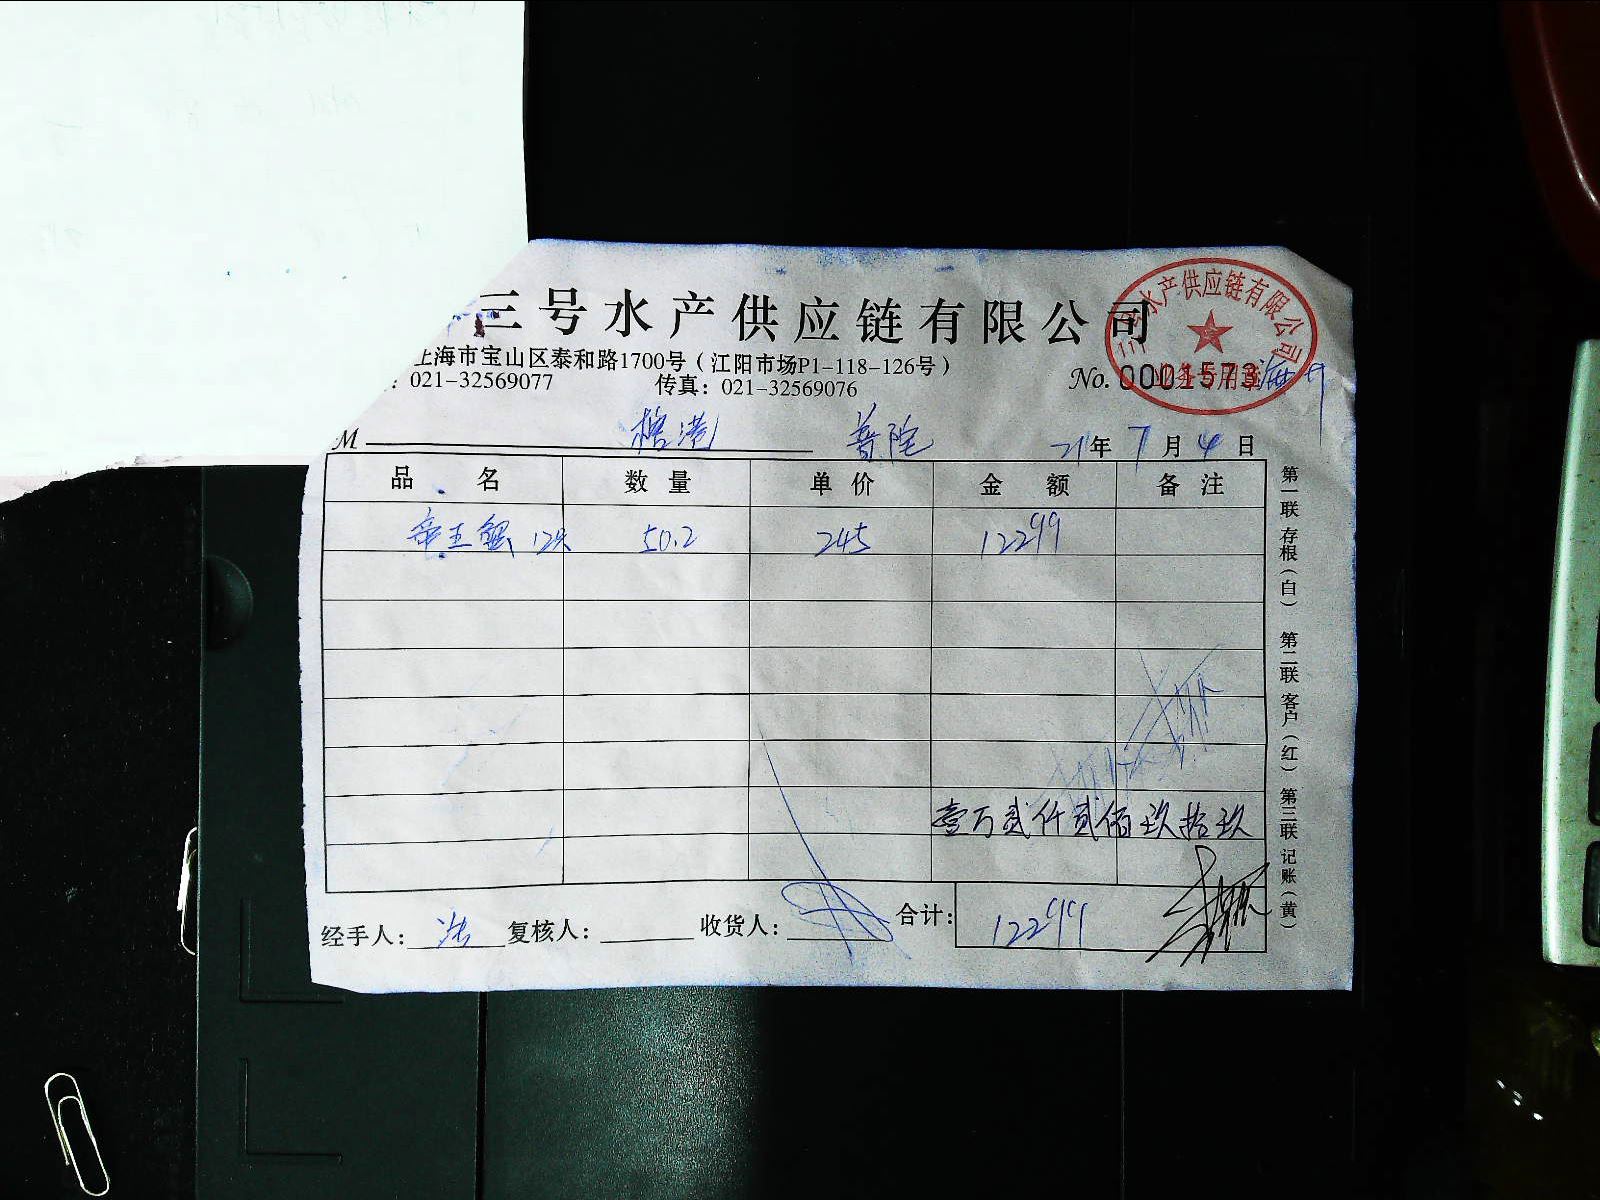 三号水产供应链有限公司
上海市宝山区泰和路1700号（江阳市场P1-118-126号）
：021-32569077 传真：021-32569076
No. 0001573
水产供应链有限公司
业务专用章
M 榕港 普陀 21年7月4日
品名 数量 单价 金额 备注
帝王蟹 12只 50.2 245 12299
壹万贰仟贰佰玖拾玖
经手人： 复核人： 收货人： 合计：12299
第一联 存根（白） 第二联 客户（红） 第三联 记账（黄）